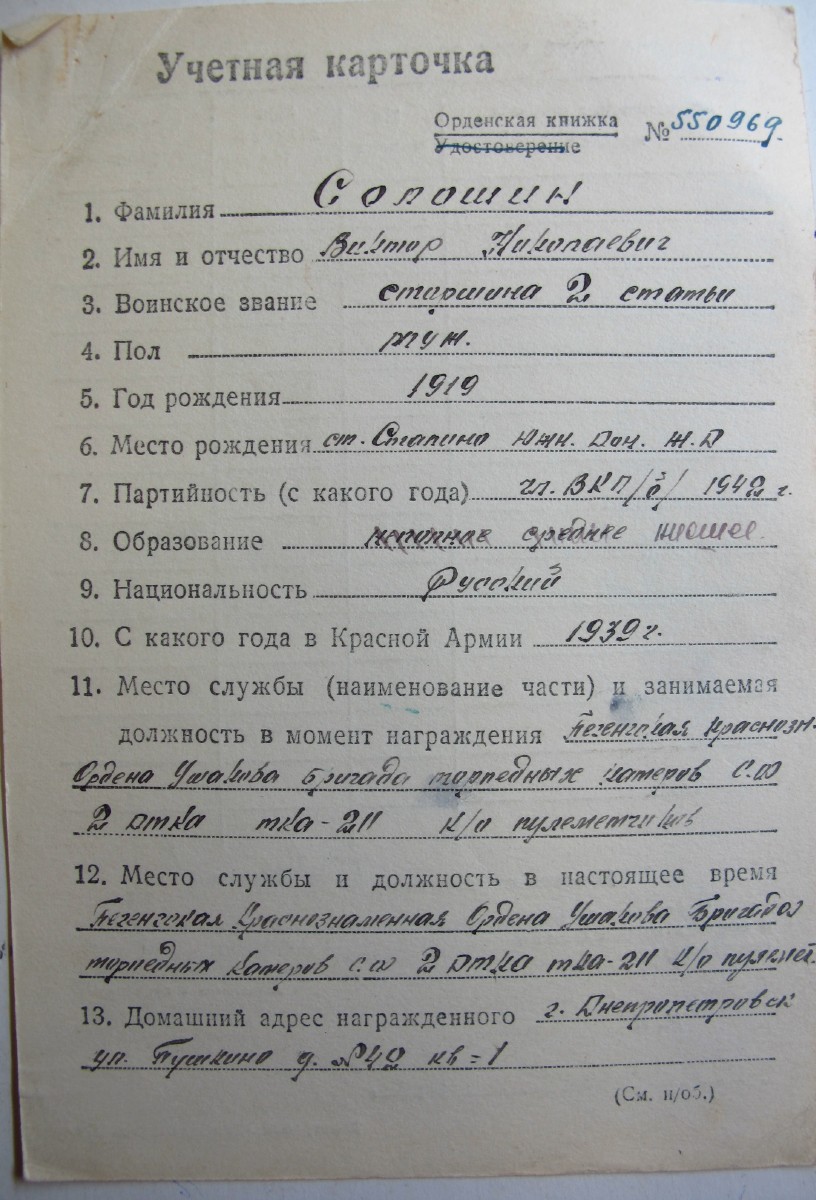 Учетная карточка
Орденская книжка
Удостоверение
№ 550969
1. Фамилия Солошин
2. Имя и отчество Виктор Николаевич
3. Воинское звание старшина 2 статьи
4. Пол муж.
5. Год рождения 1919
6. Место рождения ст. Сталино Южн. Дон. Ж.Д
7. Партийность (с какого года) чл. ВКП/б/ 1942 г.
8. Образование неполное среднее низшее.
9. Национальность Русский
10. С какого года в Красной Армии 1939 г.
11. Место службы (наименование части) и занимаемая
должность в момент награждения Печенгская Краснозн.
Ордена Ушакова Бригада торпедных катеров С.Ф
2 дтка тка-211 к/о пулеметчиков
12. Место службы и должность в настоящее время
Печенгская Краснознаменная Ордена Ушакова Бригада
торпедных катеров С.Ф 2 дтка тка-211 к/о пулемет.
13. Домашний адрес награжденного г. Днепропетровск
ул. Пушкина д. №42 кв=1
(См. н/об.)